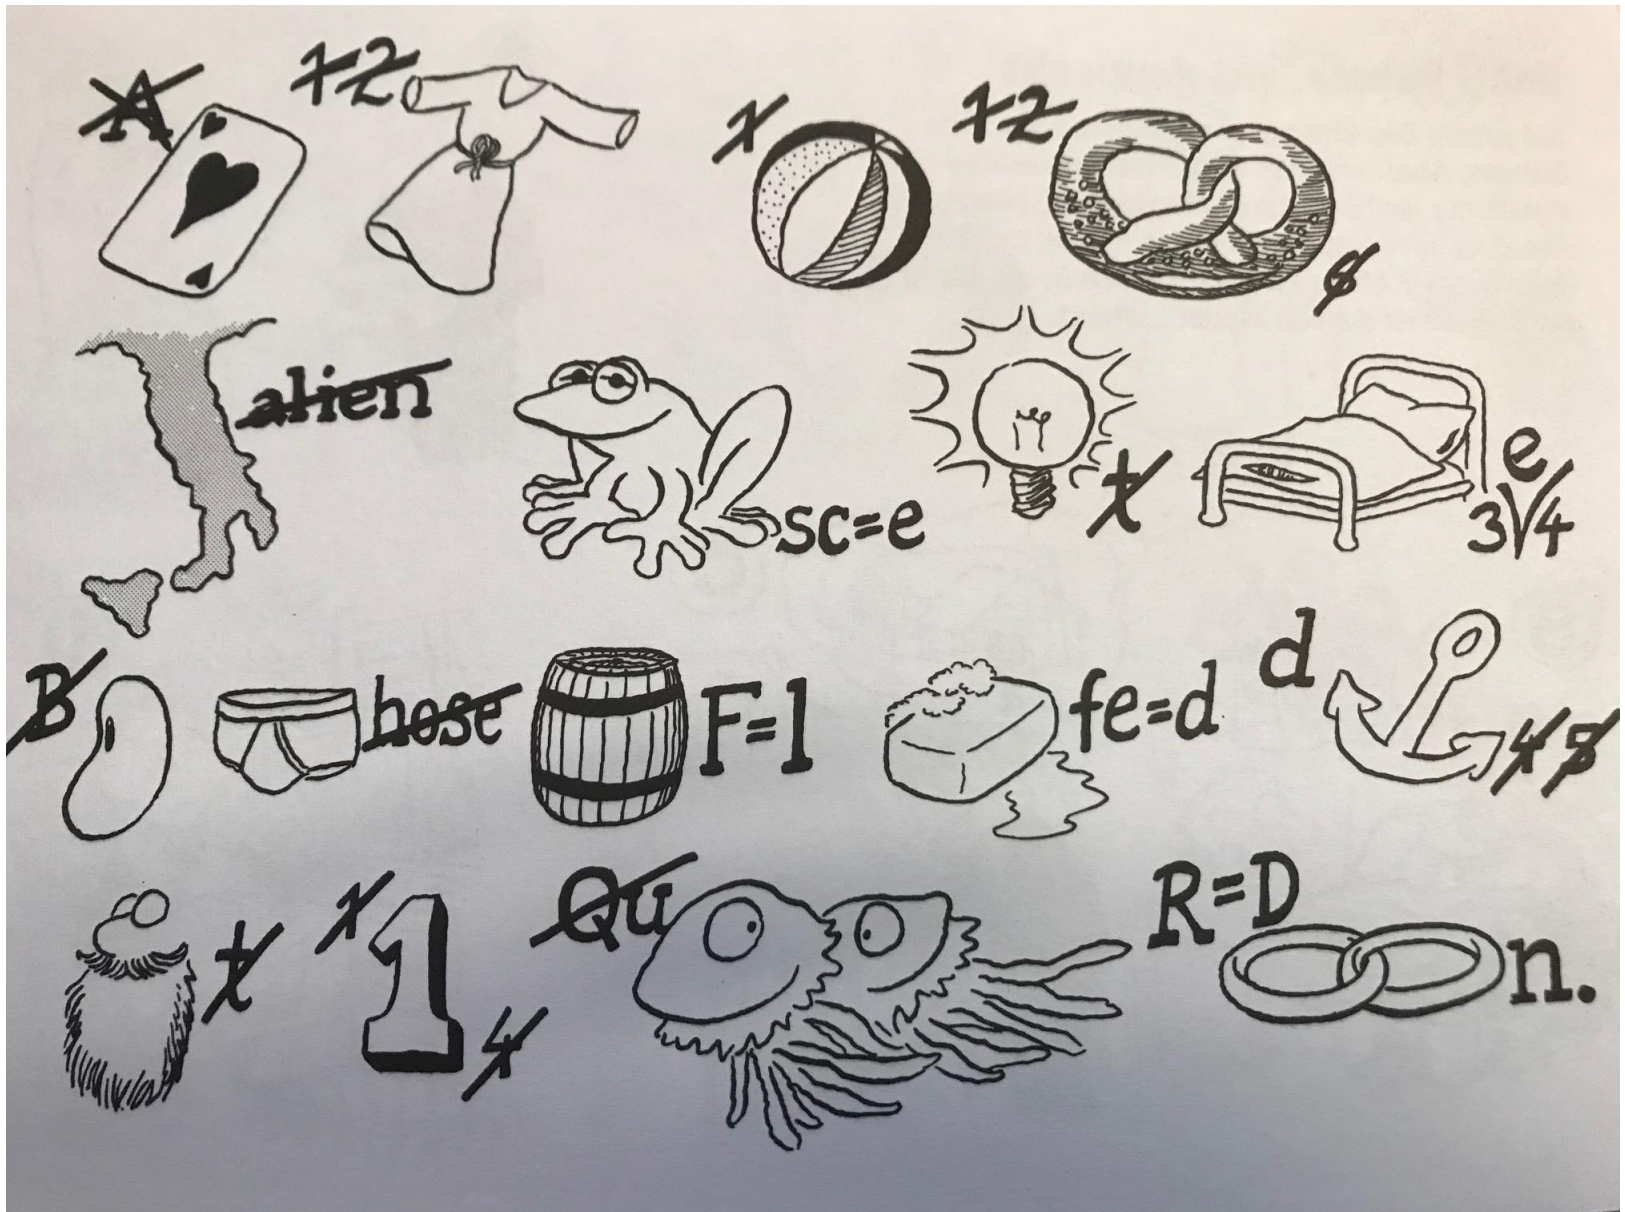 A 1 2 1 1 2 6
alien sc=e t e
3√4
B hose F=1 fe=d d 4 5
t 1 1 4 Qu R=D n.